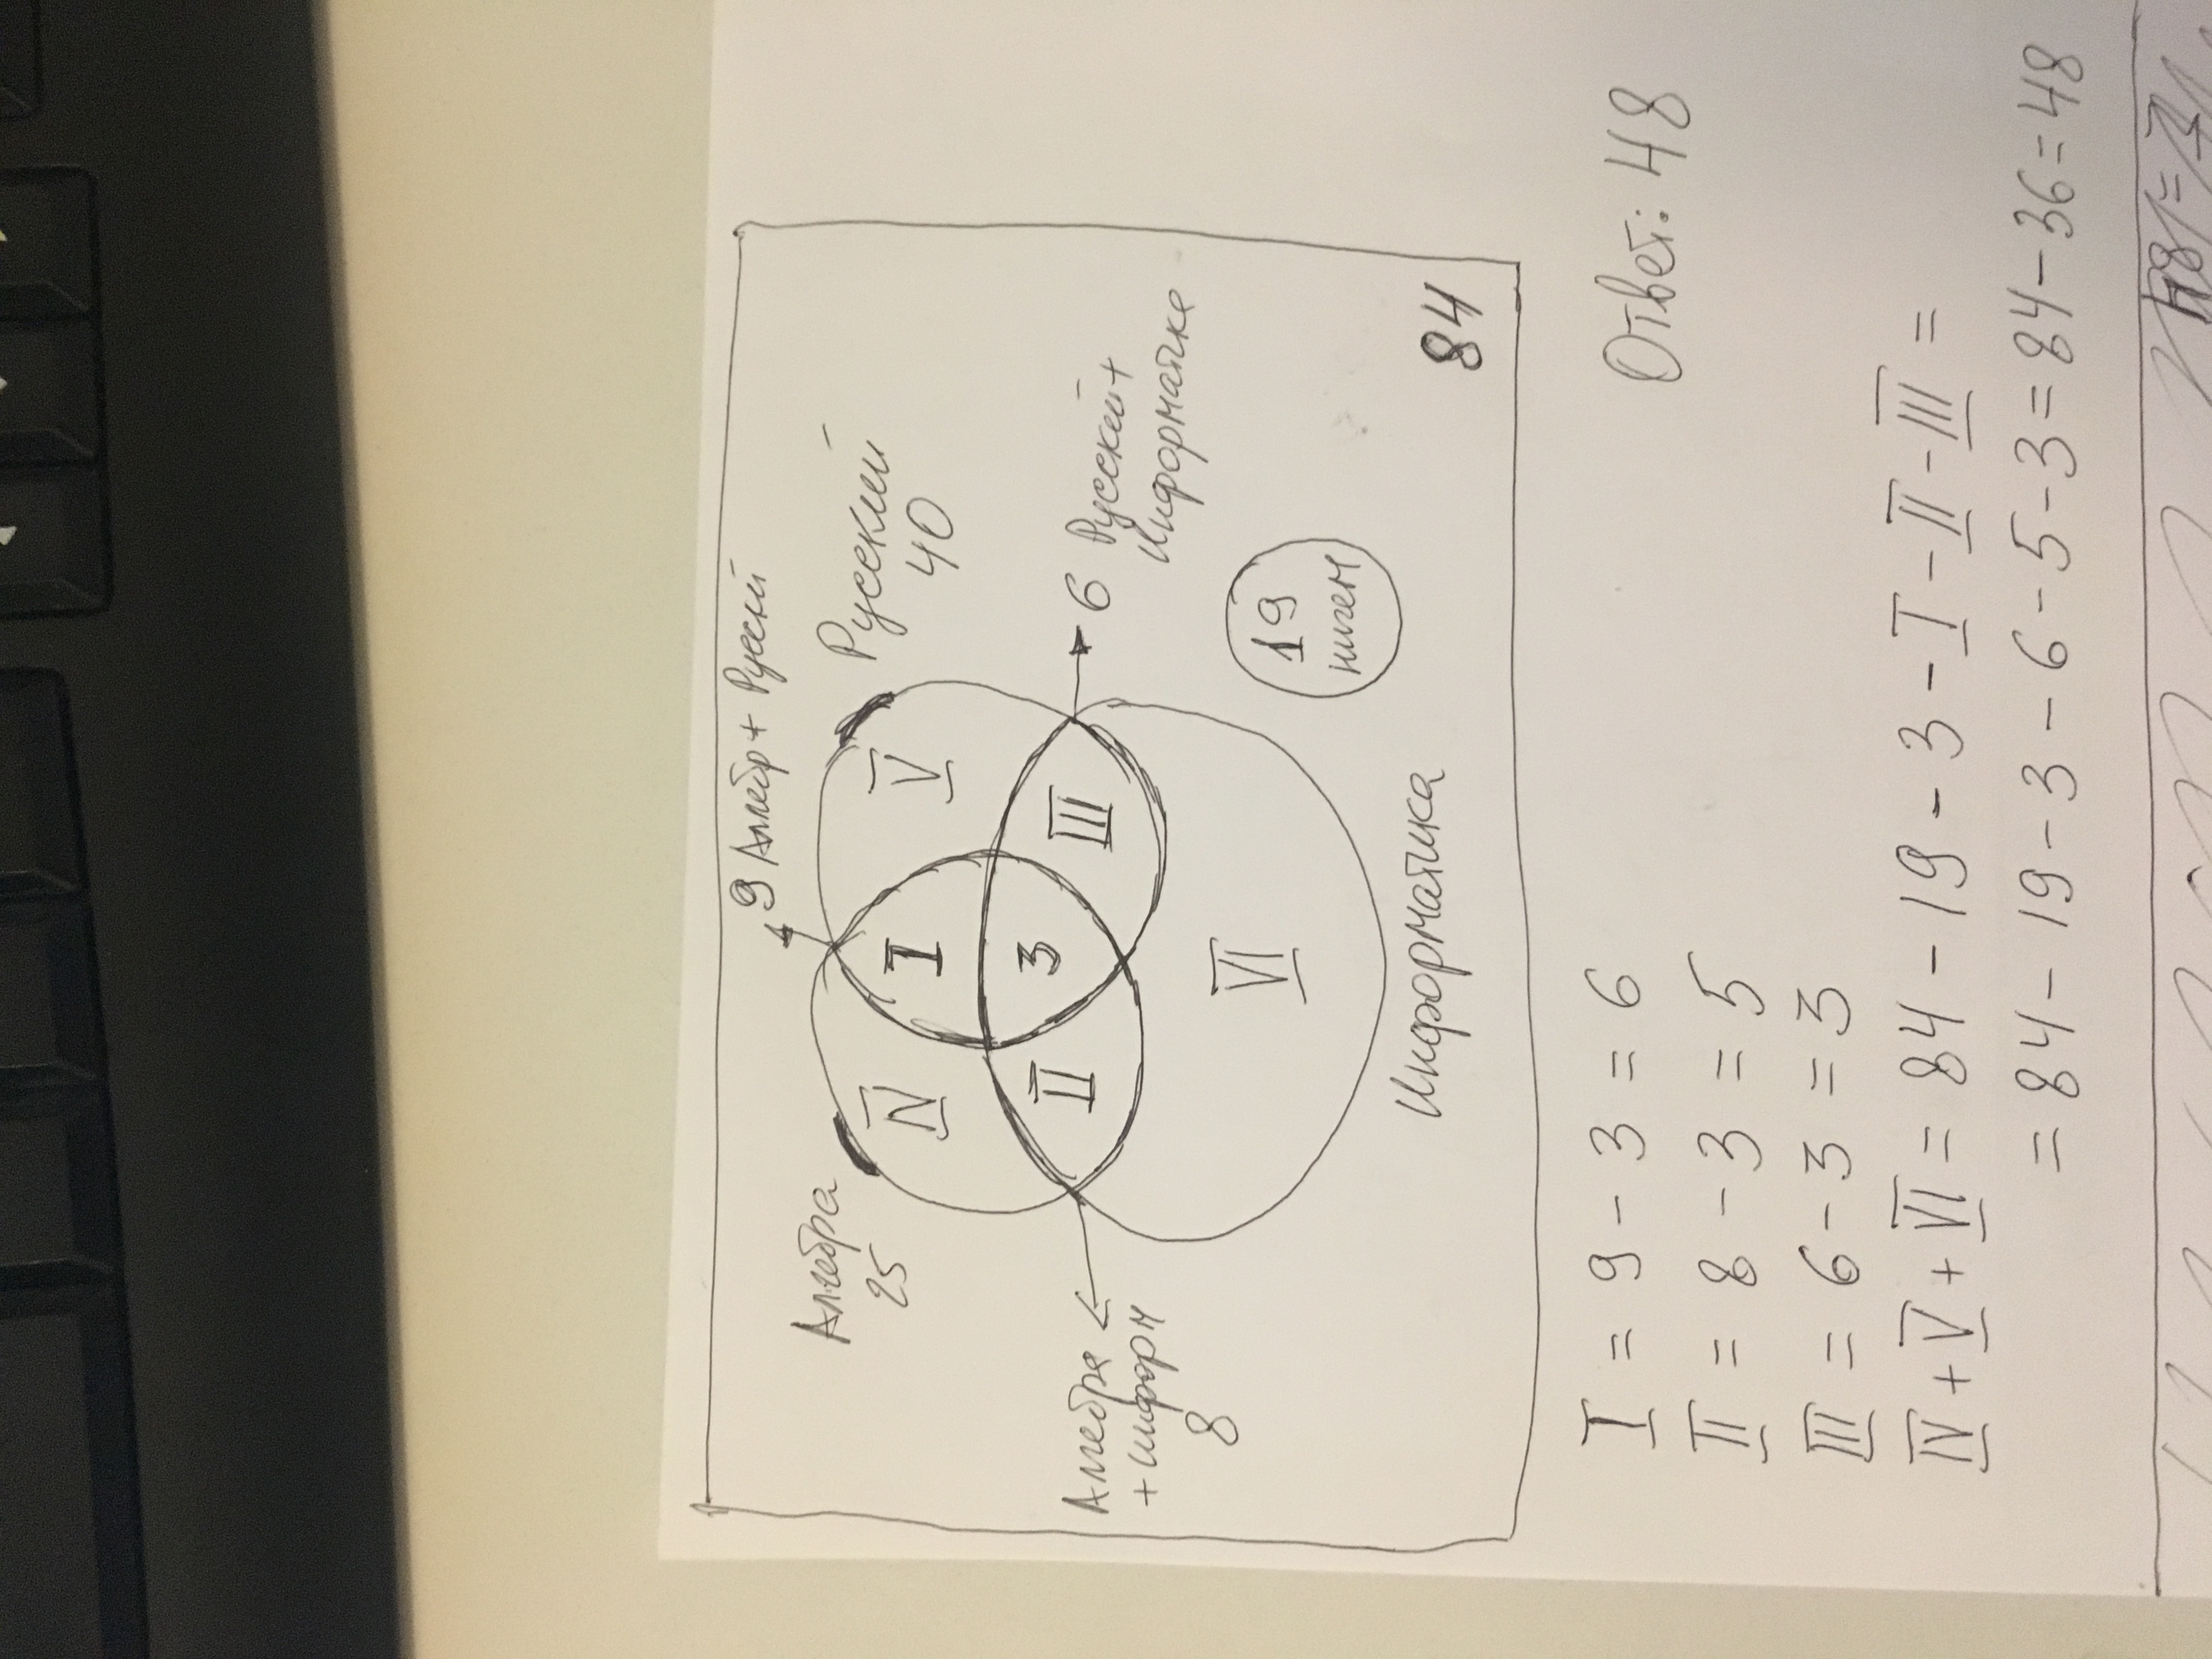 9 Алгебр + Русский
Алгебра
25
Русский
40
IV
I
V
II
3
III
Алгебра
+ информ
8
6 Русский +
Информатике
VI
19
ничем
Информатика
84
I = 9 - 3 = 6
Ответ: 48
II = 8 - 3 = 5
III = 6 - 3 = 3
IV + V + VI = 84 - 19 - 3 - I - II - III =
= 84 - 19 - 3 - 6 - 5 - 3 = 84 - 36 = 48